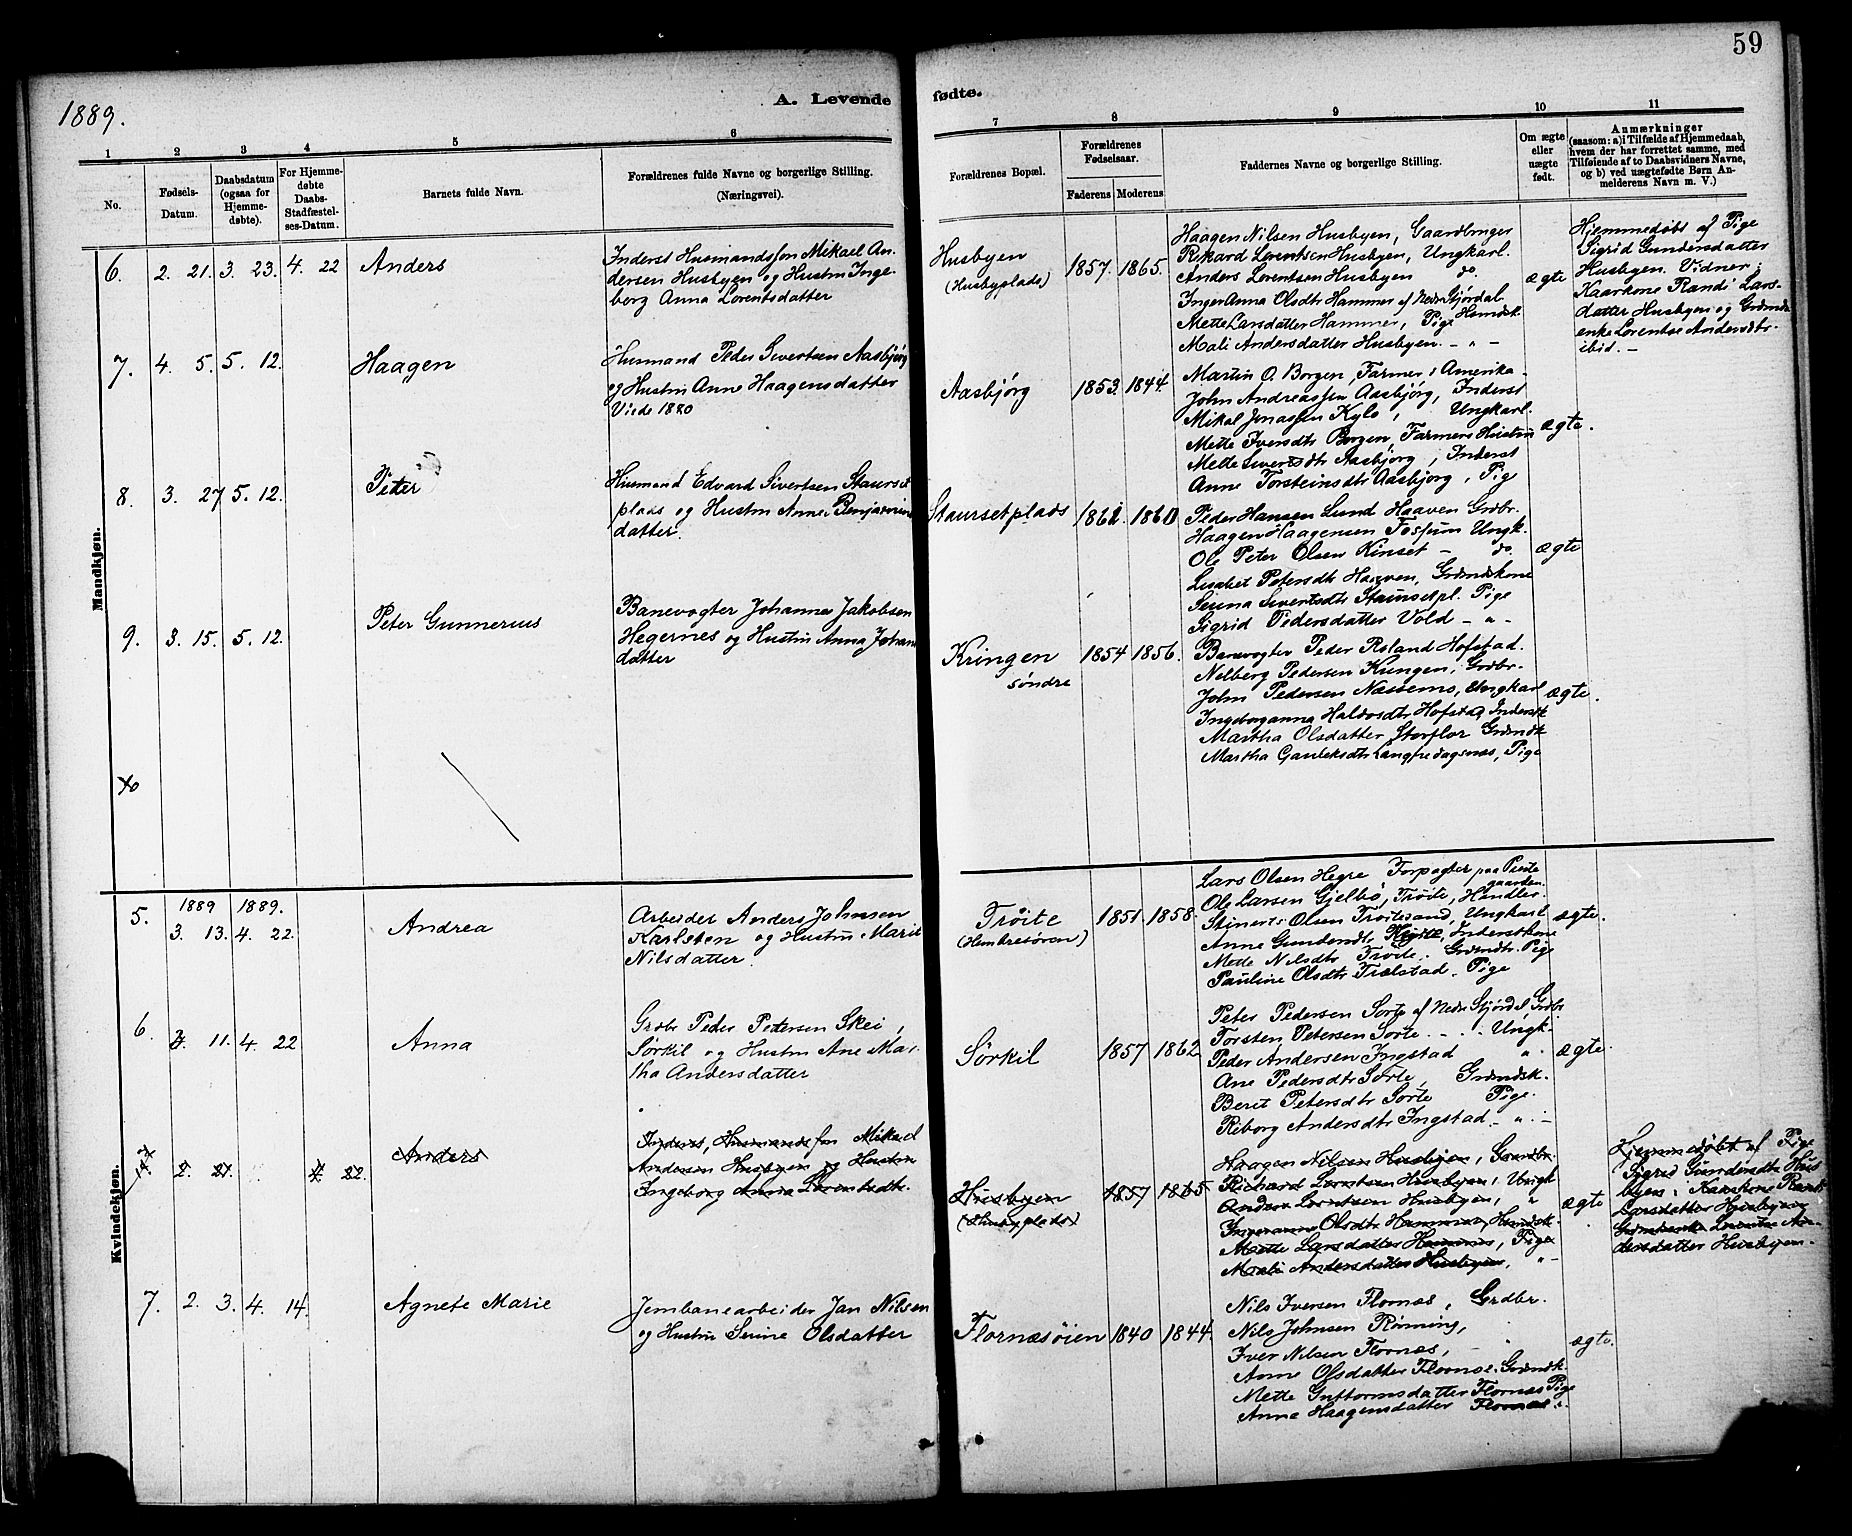 59
1889.
A. Levende
fødte.
1
2
3
4
5
6
7
8
9
10
11
No.
Fødsels-
Datum.
Daabsdatum
(ogsaa for
Hjemme-
døbte).
For Hjemme-
døbte
Daabs-
Stadfæstel-
ses-Datum.
Barnets fulde Navn.
Forældrenes fulde Navne og borgerlige Stilling.
(Næringsvei).
Forældrenes Bopæl.
Forældrenes
Fødselsaar.
Faderens
Moderens
Faddernes Navne og borgerlige Stilling.
Om ægte
eller
uægte
født.
Anmærkninger
(saasom: a) i Tilfælde af Hjemmedaab,
hvem der har forrettet samme, med
Tilføiende af to Daabsvidners Navne,
og b) ved uægtefødte Børn An-
melderens Navn m. V.)
Mandkjøn.
6. 2. 21. 3. 23. 4. 22 Anders
Inderst Husmandssøn Mikael An-
dersen Husbyen og Hustru Inge-
borg Anna Lorentsdatter
Husbyen
(Husbyplads)
1857. 1865.
Haagen Nilsen Husbyen, Gaardbruger
Rikard Lorentsen Husbyen, Ungkarl.
Anders Lorentsen Husbyen do.
Inger Anna Olsdtr Hammer af Nedr Stjørdal
Mette Larsdatter Hammer, Pige
Mali Andersdatter Husbyen. - " -
ægte
Hjemmedøbt af Pige
Sigrid Gundersdatter
Husbyen. Vidner:
Kaarkone Randi Lars-
datter Husbyen og
enke Lorentse Andersdtr
ibid. -
7. 4. 5. 5. 12. Haagen
Husmand Peder Sivertsen Aasbjørg
og Hustru Anne Haagensdatter
Viede 1880
Aasbjørg
1853. 1844.
Martin O. Borgen, Farmer i Amerika -
John Andreassen Aasbjørg, Inderst
Mikal Jonassen Kylo, Ungkarl.
Mette Iversdtr Borgen, Farmers Hustru
Mette Sivertsdtr Aasbjørg, Inderst
Anne Torsteinsdtr Aasbjørg, Pig
ægte.
8. 3. 27 5. 12. Peter
Husmand Edvard Sivertsen Staurset
plads og Hustru Anne Benjamins
datter.
Staursetplads
1862. 1860
Peder Hansen Lund Haaven Grdbr.
Haagen Haagensen Fossum Ungk.
Ole Peter Olsen Kinset - do.
Lisabet Petersdtr Haaven, Grdmdskone
Seuna Sivertsdtr Staursetpl. Pige
Sigrid Pedersdatter Vold - " -
ægte
9. 3. 15. 5. 12. Peter Gunnerius
Banevogter Johannes Jakobsen
Hegernes og Hustru Anna Johan
datter
Kringen
søndre
1854 1856.
Banevogter Peder Roland Hofstad.
Nelberg Pedersen Kringen, Grdbr.
John Pedersen Næssemo, Ungkarl
Ingeborganna Haldosdtr Hofstad, Inderstk
Martha Olsdatter Storflor Grdmdk
Martha Gauleksdtr Langfredagsnæs, Pige
ægte.
10
Kvindekjøn.
1889 1889.
5. 3. 13. 4. 22. Andrea
Arbeider Anders Johnsen
Karlsten og Hustru Marit
Nilsdatter.
Trøite
1851. 1858.
Lars Olsen Hegre Forpagter paa Præste
gaarden.
Ole Larsen Gjelbo, Trøite, Handler
Stinerts Olsen Trøitesand, Ungkarl
Anne Gundersdtr Inderstkone
Mette Nilsdtr Trøite. Grdmdtr. Pige
Pauline Olsdtr Trælstad - Pige
ægte.
6 11. 4. 22 Anna
Grdbr Peder Petersen Skei,
Sörkil og Hustru Ane Mar-
tha Andersdatter
Sörkil
1857 1862
Peter Pedersen Sorte af Nedr Stjørdal Grdbr
Torsten Petersen Sorte - . . Ungk.
Peder Andersen Ingstad ".
Ane Pedersdtr Sorte, Grdmdsk.
Berit Petersdtr Sorte Pige.
Riborg Andersdtr Ingstad - " -
ægte.
7 2. 21. 4. 22. Anders
Inderst, Husmandssøn Mikael
Andersen Husbyen og Hustru
Ingeborg Anna Lorentsdtr.
Husbyen
(Husbyplads)
1857 1865
Haagen Nilsen Husbyen, Grdbr.
Richard Lorentsen Husbyen, Ungk
Anders Lorentsen Husbyen, "
Ingeranna Olsdtr Hammer, Hmdsk.
Mette Larsdatter Hammer, Pige
Mali Andersdatter Husbyen, " -
ægte
Hjemmedøbt af Pige
Sigrid Gundersdtr Hus
byen: Kaarkone Randi
Larsdatter Husbyen
Lorentse An-
dersdatter Husbyen.
7. 2. 3. 4. 14. Agnete Marie
Jernbanearbeider Jan Nilsen
og Hustru Serine Olsdatter
Flornæsøien
1840 1844.
Nils Iversen Flornæs, Grdbr.
Nils Johnsen Rønning,
Iver Nilsen Flornæs,
Anne Olsdatter Flornæs. Grdmdk.
Mette Guttormsdatter Flornæs Pige
Anna Haagensdatter Flornæs "
ægte.